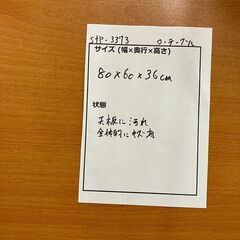 stp-3373 ローテーブル
サイズ(幅×奥行×高さ)
80×60×36cm
状態
天板に汚れ
全体的にキズ有